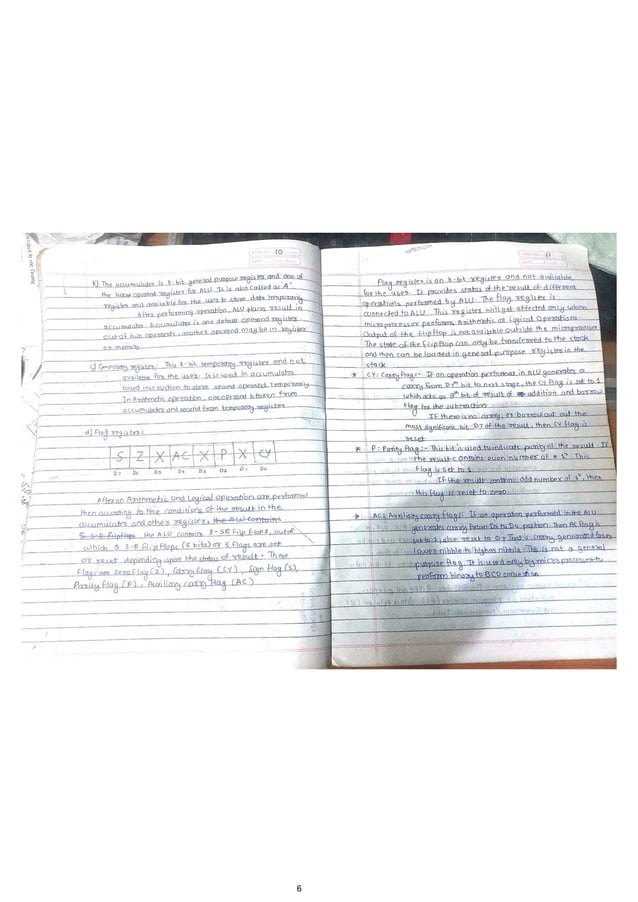 10
b) The accumulator is 8-bit general purpose register and one of
the two operand register for ALU. It is also called as 'A'
register and available for the user to store data temporarily
After performing operation, ALU places result in
accumulator. Accumulator is one default operand register
out of two operands, another operand may be in register
or memory
c) Temporary register: This 8-bit temporary register and not
available for the user. It is used in accumulator
based instruction to store second operand temporarily
In Arithmetic operation, one operand is taken from
accumulator and second from temporary register
d) Flag register:
S Z X AC X P X CY
D7 D6 D5 D4 D3 D2 D1 D0
After an Arithmetic and Logical operation are performed
then according to the conditions of the result in the
accumulator and other register, the ALU contains
5 S-R flipflops the ALU contains 8-SR Flip Flops, out of
which 5 S-R Flip Flops (5 bits) or 5 flags are set
or reset depending upon the status of result. These
flags are zero flag (Z), Carry flag (CY), Sign flag (S),
Parity flag (P), Auxiliary carry flag (AC)
11
Flag register is an 8-bit register and not available
for the user. It provides status of the result of different
operations performed by ALU. The flag register is
connected to ALU. This register will get affected only when
microprocessor perform Arithmetic or Logical Operations
Output of the flipflop is not available outside the microprocessor
The state of the flipflop can only be transferred to the stack
and then can be loaded in general purpose register in the
stack
* CY: Carry flag:- If an operation performed in ALU generates a
carry from D7th bit to next stage, the CY flag is set to 1
which acts as 9th bit of result of addition and borrow
flag for the subtraction
If there is no carry, or borrow out out the
most significant bit D7 of the result, then CY flag is
reset
* P: Parity flag:- This bit is used to indicate parity of the result. If
the result contains even number of 1s. This
flag is set to 1
If the result contains odd number of 1s, then
this flag is reset to zero
* AC: Auxiliary carry flag: If an operation performed in the ALU
generates carry from D3 to D4 position. Then AC flag is
set to 1, else reset to 0. That is carry generated from
lower nibble to higher nibble. This is not a general
purpose flag. It is used only by microprocessor to
perform binary to BCD conversion
6